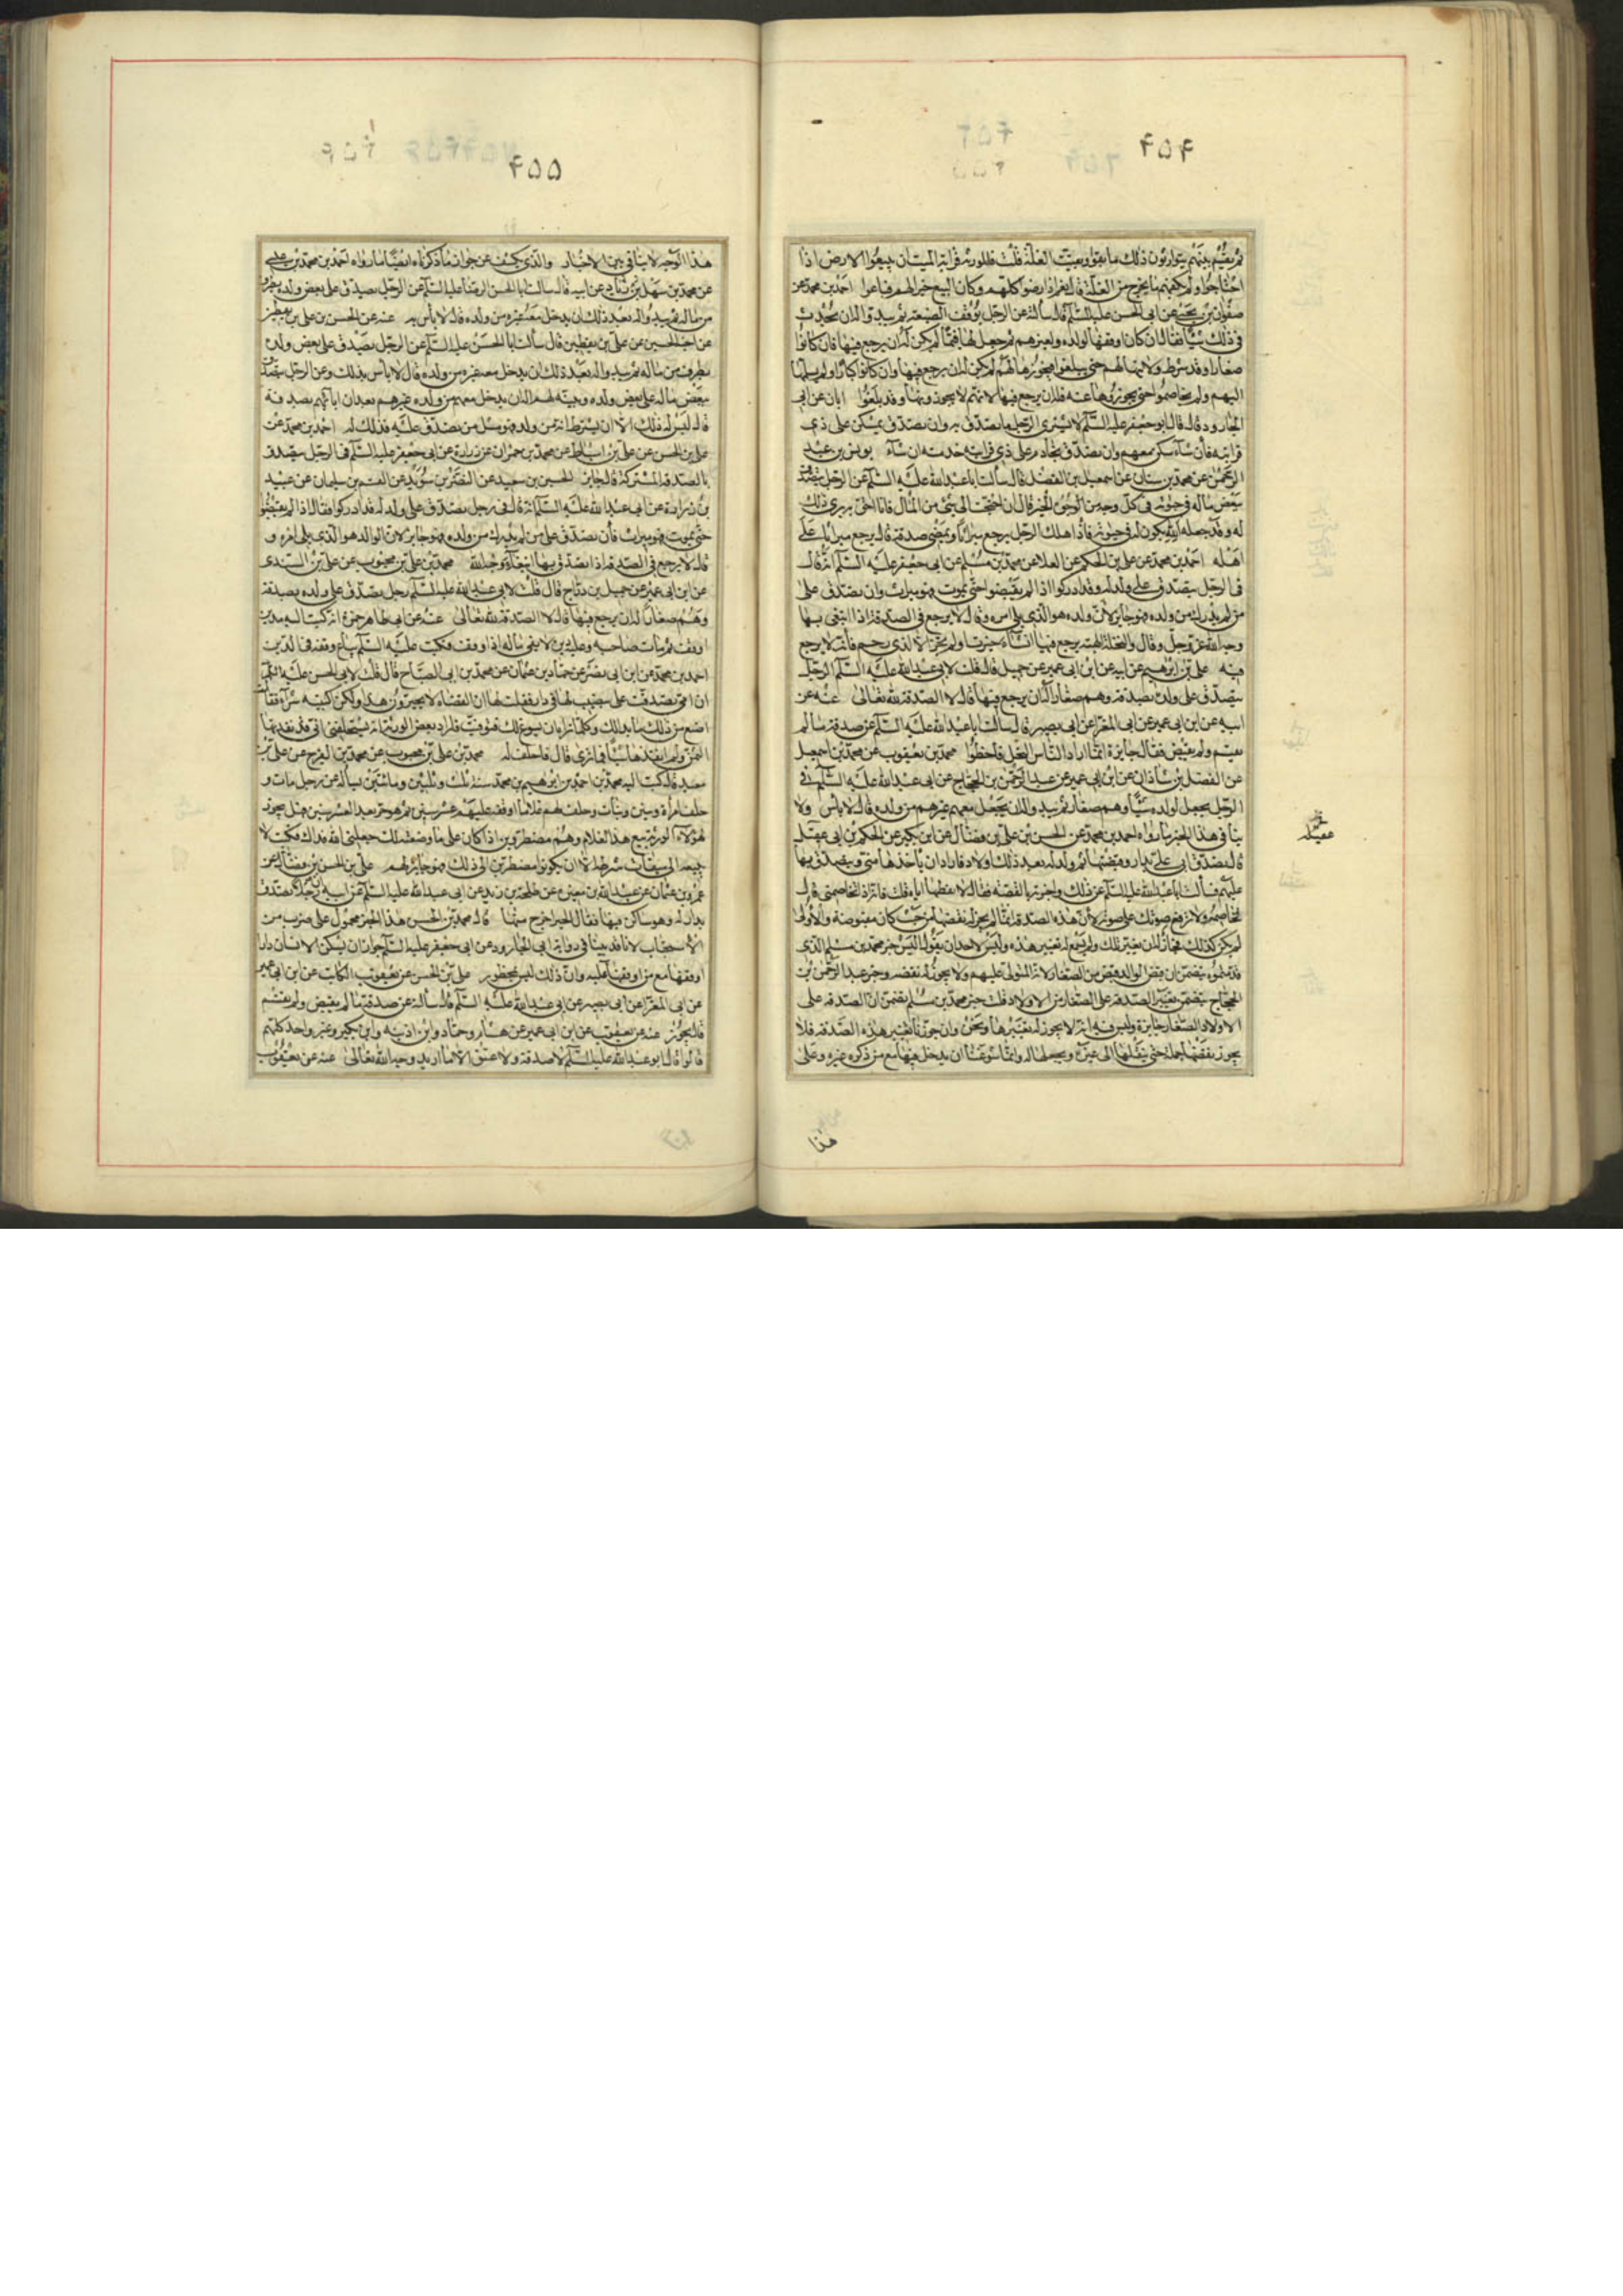 ۴۵۴
ثم يقسم بينهم يتوارثون ذلك ما بقوا وبقيت الغلة قلت فللورثة من قرابة الميت ان يبيعوا الارض اذا
احتاجوا ولم يكفهم ما يخرج من الغلة قال نعم اذا رضوا كلهم وكان البيع خيرا لهم فباعوا احمد بن محمد عن
صفوان بن يحيى عن ابى الحسن عليه السلام قال سألته عن الرجل يوقف الضيعة ثم يبدو له ان يحدث
فى ذلك شيئا فقال ان كان اوقفها لولده ولغيرهم ثم جعل لها قيما لم يكن له ان يرجع فيها فان كانوا
صغارا وقد شرط ولايتها لهم حتى يبلغوا فيحوزها لهم لم يكن له ان يرجع فيها وان كانوا كبارا ولم يسلمها
اليهم ولم يخاصموا حتى يحوزوها عنه فله ان يرجع فيها لانهم لا يحوزونها وقد بلغوا ابان عن ابى
الجارود قال قال ابو جعفر عليه السلام لا يشترى الرجل ما تصدق به وان تصدق بمسكن على ذى
قرابته فان شاء سكن معهم وان تصدق بخادم على ذى قرابته خدمته ان شاء يونس بن عبد
الرحمن عن محمد بن سنان عن اسمعيل بن الفضل قال سألت ابا عبد الله عليه السلام عن الرجل يتصدق
ببعض ماله فى حيوته فى كل وجه من الوجوه الخير قال ان احتجت الى شىء من المال فانا احق به يرى ذلك
له وقد جعله لله يكون له فى حيوته فاذا هلك الرجل يرجع ميراثا ويمضى صدقة قال يرجع ميراثا على
اهله احمد بن محمد عن على بن الحكم عن العلا عن محمد بن مسلم عن ابى جعفر عليه السلام انه قال
فى الرجل يتصدق على ولد له وقد ادركوا اذا لم يقبضوا حتى يموت فهو ميراث وان تصدق على
من لم يدرك من ولده فهو جايز لان والده هو الذى يلى امره وقال لا يرجع فى الصدقة اذا ابتغى بها
وجه الله عز وجل وقال والنحلة والهبة يرجع فيها ان شاء حيزت او لم تحز الا لذى رحم فانه لا يرجع
فيه على بن ابرهيم عن ابيه عن ابن ابى عمير عن جميل قال قلت لابى عبد الله عليه السلام الرجل
يتصدق على ولده بصدقة وهم صغار اله ان يرجع فيها قال لا الصدقة لله تعالى عنه عن
ابيه عن ابن ابى عمير عن ابى المغرا عن ابى بصير قال سألت ابا عبد الله عليه السلام عن صدقة ما لم
تقسم ولم تقبض فقال جايزة انما اراد الناس النحل فاخطؤا محمد بن يعقوب عن محمد بن اسمعيل
عن الفضل بن شاذان عن ابن ابى عمير عن عبد الرحمن بن الحجاج عن ابى عبد الله عليه السلم فى
الرجل يجعل لولده شيئا وهم صغار ثم يبدو له ان يجعل معهم غيرهم من ولده قال لا بأس ولا
ينافى هذا الخبر ما رواه احمد بن محمد عن الحسن بن على بن فضال عن ابن بكير عن الحكم بن ابى عقيل
قال تصدق ابى على بدار وقبضتها ثم ولد له بعد ذلك اولاد فاراد ان يأخذها منى ويتصدق بها
عليهم فسألت ابا عبد الله عليه السلام عن ذلك واخبرته بالقصة فقال لا تعطها اياه قلت فانه اذا يخاصمنى قال
فخاصمه ولا ترفع صوتك على صوته لان هذه الصدقة انما لم يجز له نقضها من حيث كان مقبوضة والاولى
لم يكن كذلك فجاز له ان يغير تلك ولم يجز له تغيير هذه وليس لاحد ان يقول اليس خبر محمد بن مسلم الذى
قدمتموه يتضمن ان قبض الوالد قبض من الصغار لانه المتولى عليهم ولا يجوز له نقضه وخبر عبد الرحمن بن
الحجاج يتضمن تغيير الصدقة على الصغار من الاولاد قلت خبر محمد بن مسلم يتضمن ان الصدقة على
الاولاد الصغار جايزة وليس فيه انه لا يجوز له تغييرها ونحن وان جوزنا تغيير هذه الصدقة فلا
يجوز نقضها جملة حتى ينقلها الى غيره ويجعلها له وانما سوغنا ان يدخل فيها مع من ذكره غيره وعلى
عقيلة
هذا
۴۵۵
هذا الوجه لا ينافى بين الاخبار والذى يكشف عن جواز ما ذكرناه ايضا ما رواه احمد بن محمد بن على
عن محمد بن سهل عن ابيه قال سألت ابا الحسن الرضا عليه السلام عن الرجل يتصدق على بعض ولده بطرف
من ماله ثم يبدو له بعد ذلك ان يدخل معه غيره من ولده قال لا بأس به عنه عن الحسن بن على بن يقطين
عن اخيه الحسين عن على بن يقطين قال سألت ابا الحسن عليه السلام عن الرجل يتصدق على بعض ولده
بطرف من ماله ثم يبدو له بعد ذلك ان يدخل معه غيره من ولده قال لا بأس بذلك وعن الرجل يتصدق
ببعض ماله على بعض ولده ويبينه لهم اله ان يدخل معهم من ولده غيرهم بعد ان ابانهم بصدقة
قال ليس له ذلك الا ان يشترط انه من ولد فهو مثل من تصدق عليه فذلك له احمد بن محمد عن
على بن الحسن عن على بن اسباط عن محمد بن حمران عن زرارة عن ابى جعفر عليه السلام فى الرجل يتصدق
بالصدقة المشتركة قال جايز الحسين بن سعيد عن النضر بن سويد عن القسم بن سليمان عن عبيد
بن زرارة عن ابى عبد الله عليه السلام انه قال فى رجل تصدق على ولد له قد ادركوا فقال اذا لم يقبضوا
حتى يموت فهو ميراث فان تصدق على من لم يدرك من ولده فهو جايز لان الوالد هو الذى يلى امره و
قال لا يرجع فى الصدقة اذا تصدق بها ابتغاء وجه الله محمد بن على بن محبوب عن على بن السندى
عن ابن ابى عمير عن جميل بن دراج قال قلت لابى عبد الله عليه السلام رجل تصدق على ولده بصدقة
وهم صغار اله ان يرجع فيها قال لا الصدقة لله تعالى عنه عن ابى طاهر حمزة انه كتب اليه مدين
اوقف ثم مات صاحبه وعليه دين لا يفى ماله اذا وقف فكتب عليه السلم يباع وقفه فى الدين
احمد بن محمد عن ابن ابى نصر عن حماد بن عثمان عن محمد بن ابى الصباح قال قلت لابى الحسن عليه السلم
ان امى تصدقت على بنصيب لها فى دار فقلت لها ان القضاة لا يجيزون هذا ولكن كتبيه شراء فقالت
اصنع من ذلك ما بدا لك وكلما ترى انه يسوغ لك فتوثقت فاراد بعض الورثة ان يستحلفنى انى قد نقدتها
الثمن ولم انقدها شيئا فما ترى قال فاحلف له محمد بن على بن محبوب عن محمد بن الفرج عن على بن
معبد قال كتب اليه محمد بن احمد بن ابرهيم بن محمد سنة ثلث وثلثين ومائتين يسأله عن رجل مات و
خلف امرأة وبنين وبنات وخلف لهم غلاما اوقفه عليهم عشر سنين ثم هو حر بعد العشر سنين فهل يجوز
لهؤلاء الورثة بيع هذا الغلام وهم مضطرون اذا كان على ما وصفته لك جعلنى الله فداك فكتب لا
يبيعه الى ميقات شرطه الا ان يكونوا مضطرين الى ذلك فهو جايز لهم على بن الحسن بن فضال عن
عمرو بن عثمان عن عبد الله بن المغيرة عن طلحة بن زيد عن ابى عبد الله عليه السلام عن ابيه ان رجلا تصدق
بدار له وهو ساكن فيها فقال الحين اخرج منها قال محمد بن الحسن هذا الخبر محمول على ضرب من
الاستحباب لانا قد بينا فى رواية ابى الجارود عن ابى جعفر عليه السلام جواز ان يسكن الانسان دارا
اوقفها مع من اوقفها عليه وان ذلك ليس بمحظور على بن الحسن عن يعقوب الكاتب عن ابن ابى عمير
عن ابى المغرا عن ابى بصير عن ابى عبد الله عليه السلم قال سألته عن صدقة ما لم يقبض ولم يقسم
قال يجوز عنه عن يعقوب عن ابن ابى عمير عن هشام وحماد وابن اذينة وابن بكير وغير واحد كلهم
قالوا قال ابو عبد الله عليه السلم لا صدقة ولا عتق الا ما اريد وجه الله تعالى عنه عن يعقوب